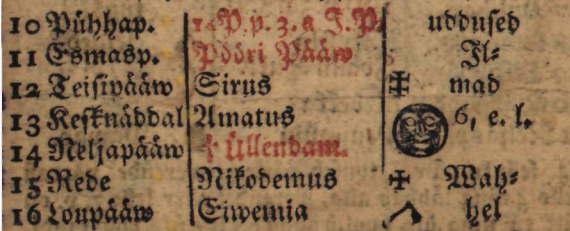 10 Pühhap. 14 P. p. 3. a J. P. uddused
11 Esmasp. Pööri Pääw Il⸗
12 Teisipääw Sirus mad
13 Kesknäddal Amatus 6, e. l.
14 Neljapääw † Üllendam.
15 Rede Nikodemus Wah⸗
16 Loupääw Eiwemia hel